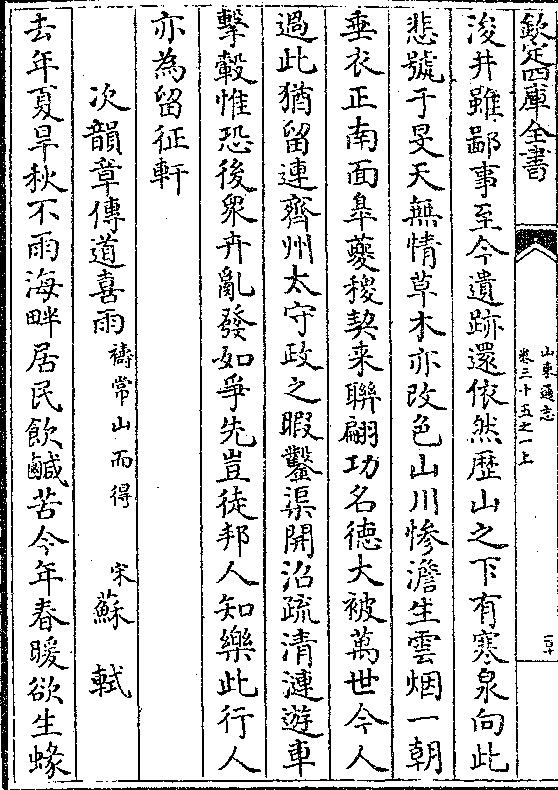 欽定四庫全書
山東通志
卷三十五之一上
浚井雖鄙事至今遺跡還依然歴山之下有寒泉向此
悲號于旻天無情草木亦改色山川惨澹生雲烟一朝
垂衣正南面臯夔稷契来聯翩功名徳大被萬世今人
過此猶留連齊州太守政之暇鑿渠開沼疏清漣遊車
擊轂惟恐後衆卉亂發如爭先豈徒邦人知樂此行人
亦為留征軒
次韻章傳道喜雨禱常山而得 宋蘇軾
去年夏旱秋不雨海畔居民飲鹹苦今年春暖欲生蝝